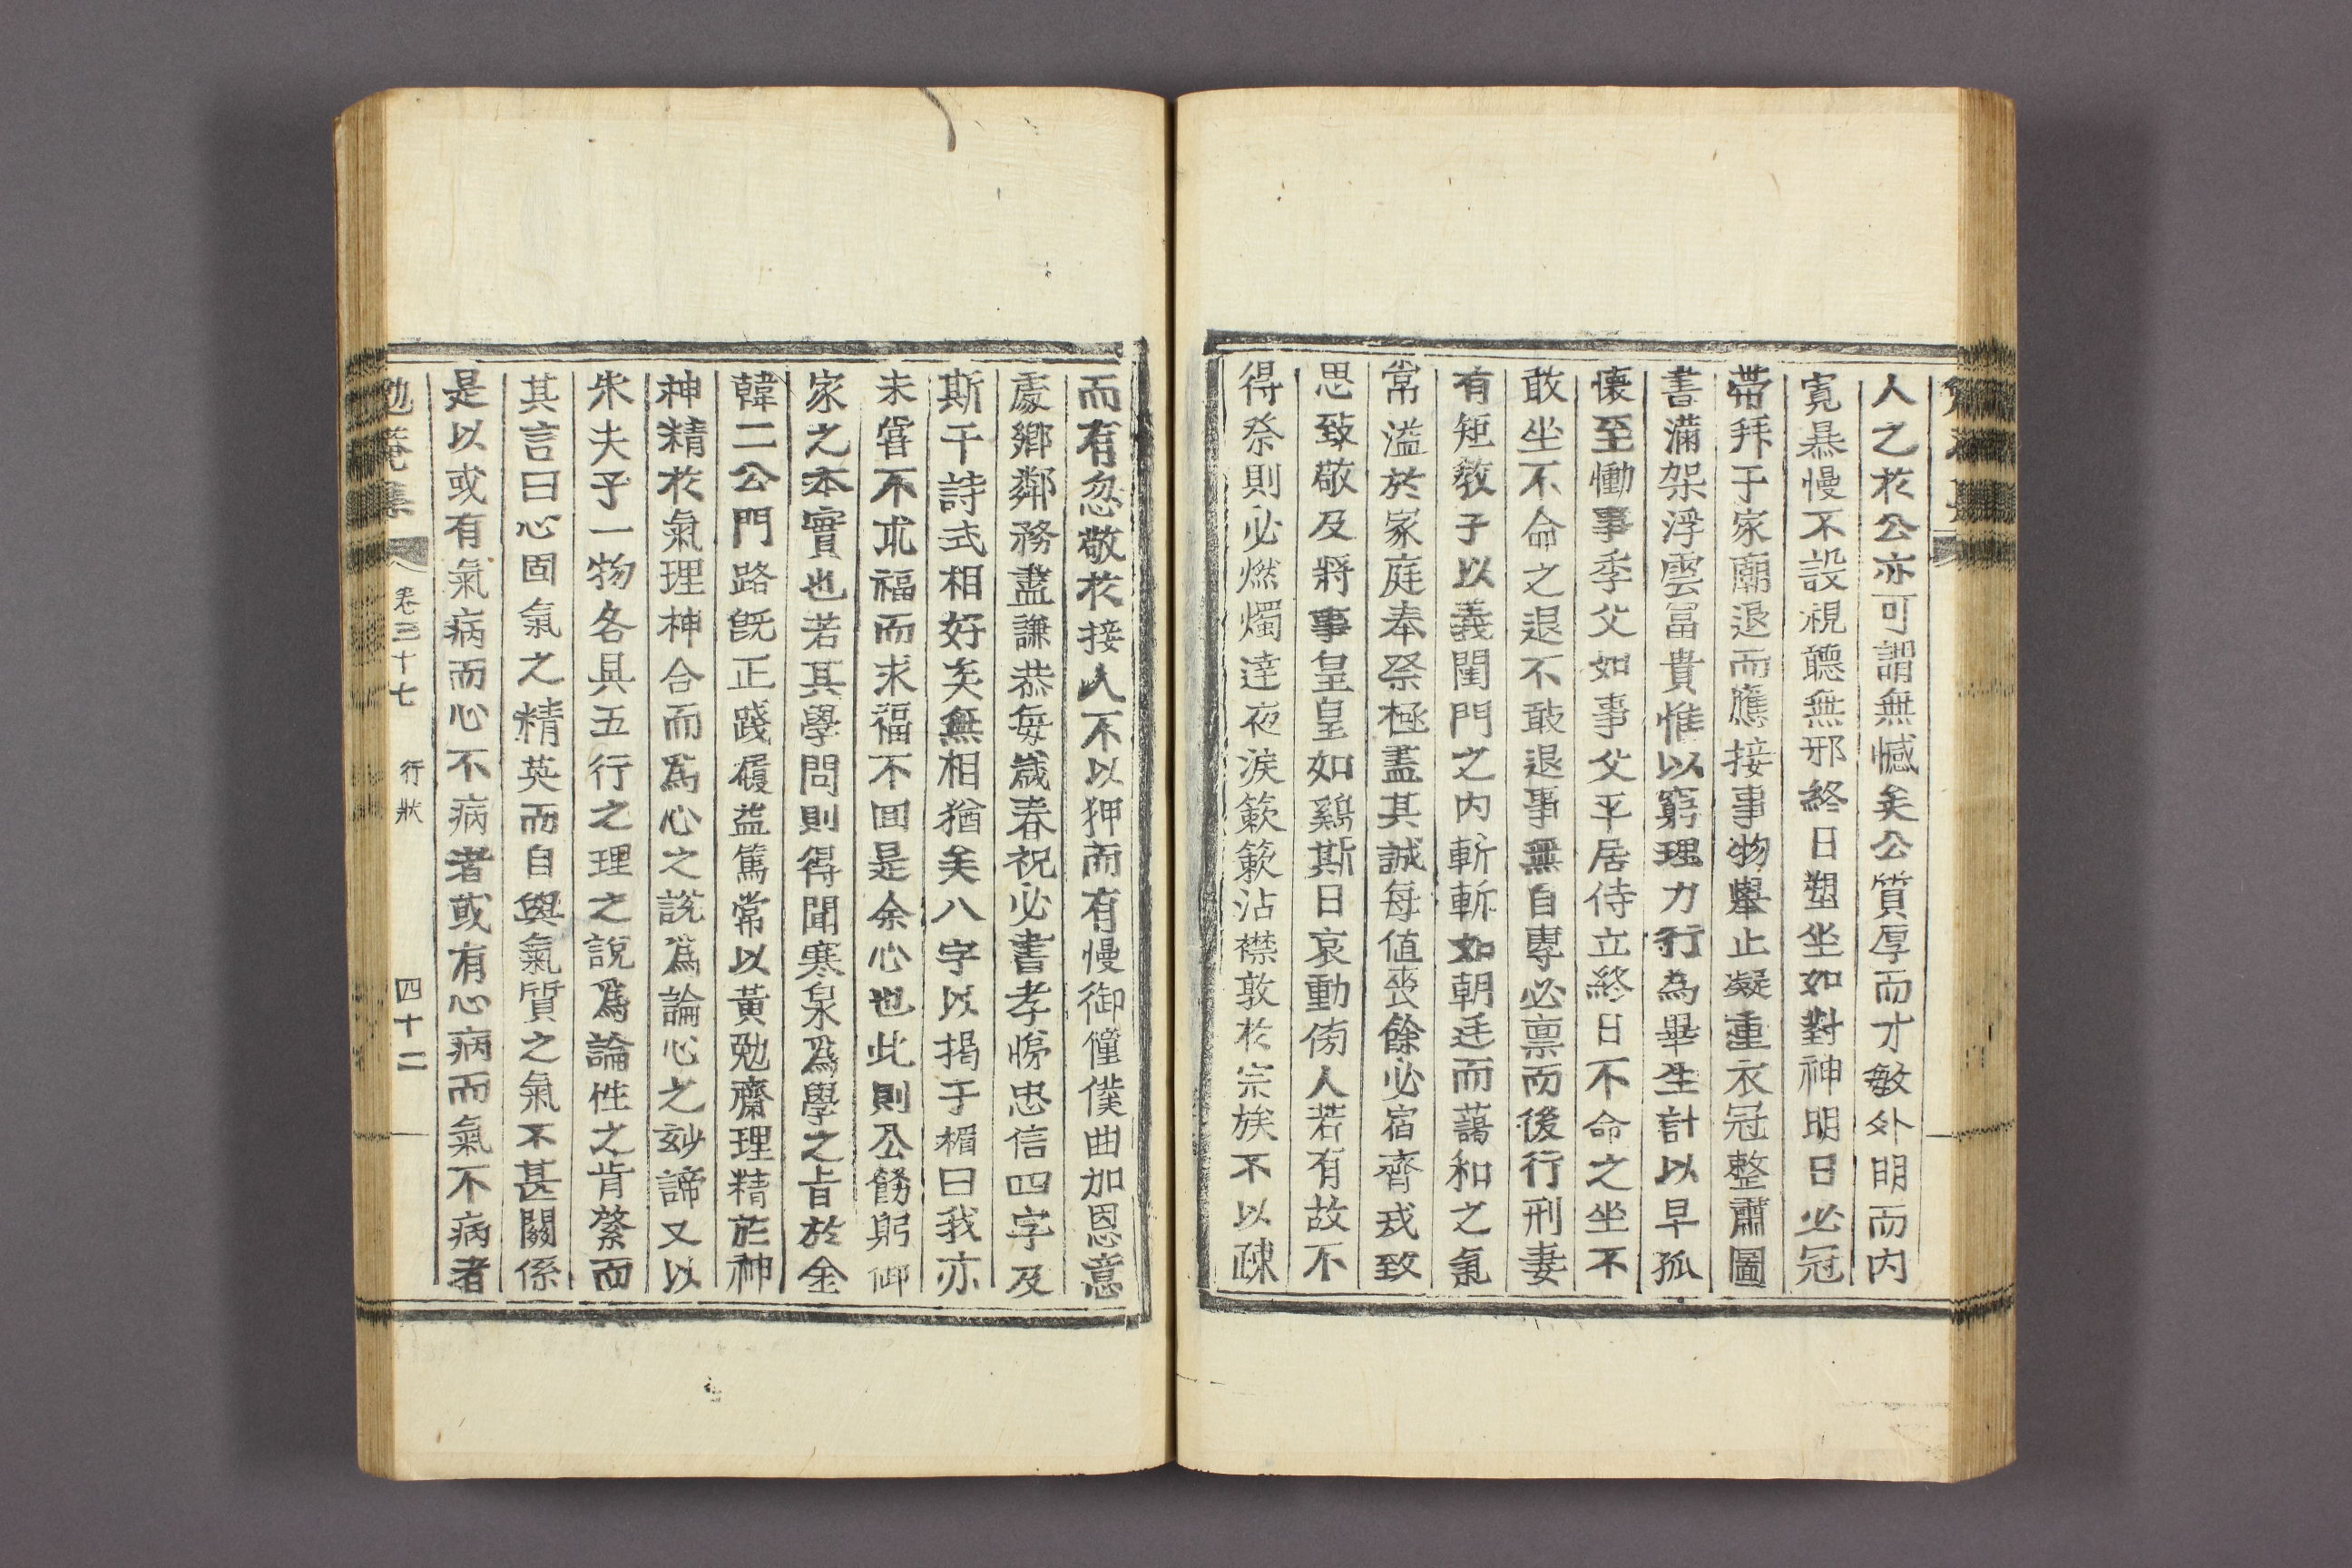 人之於公亦可謂無憾矣公質厚而才敏外明而內
寬暴慢不設視聽無邪終日塑坐如對神明日必冠
帶拜于家廟退而應接事物擧止凝重衣冠整肅圖
書滿架浮雲冨貴惟以窮理力行為畢生計以早孤
懷至慟事季父如事父平居侍立終日不命之坐不
敢坐不命之退不敢退事無自專必禀而後行刑妻
有矩敎子以義閨門之內斬斬如朝廷而藹和之氣
常溢於家庭奉祭極盡其誠每値喪餘必宿齊戒致
思致敬及將事皇皇如鷄斯日哀動傍人若有故不
得祭則必燃燭達夜淚簌簌沾襟敦於宗族不以疎
而有忽敬於接人不以狎而有慢御僮僕曲加恩意
處鄕鄰務盡謙恭每歲春祝必書孝悌忠信四字及
斯干詩式相好矣無相猶矣八字以揭于楣曰我亦
未甞不求福而求福不回是余心也此則公飭躬御
家之本實也若其學問則得聞寒泉爲學之旨於金
韓二公門路旣正踐履益篤常以黃勉齋理精於神
神精於氣理神合而爲心之說爲論心之玅諦又以
朱夫子一物各具五行之理之說爲論性之肯綮而
其言曰心固氣之精英而自與氣質之氣不甚關係
是以或有氣病而心不病者或有心病而氣不病者
勉菴集 卷三十七 行狀 四十二